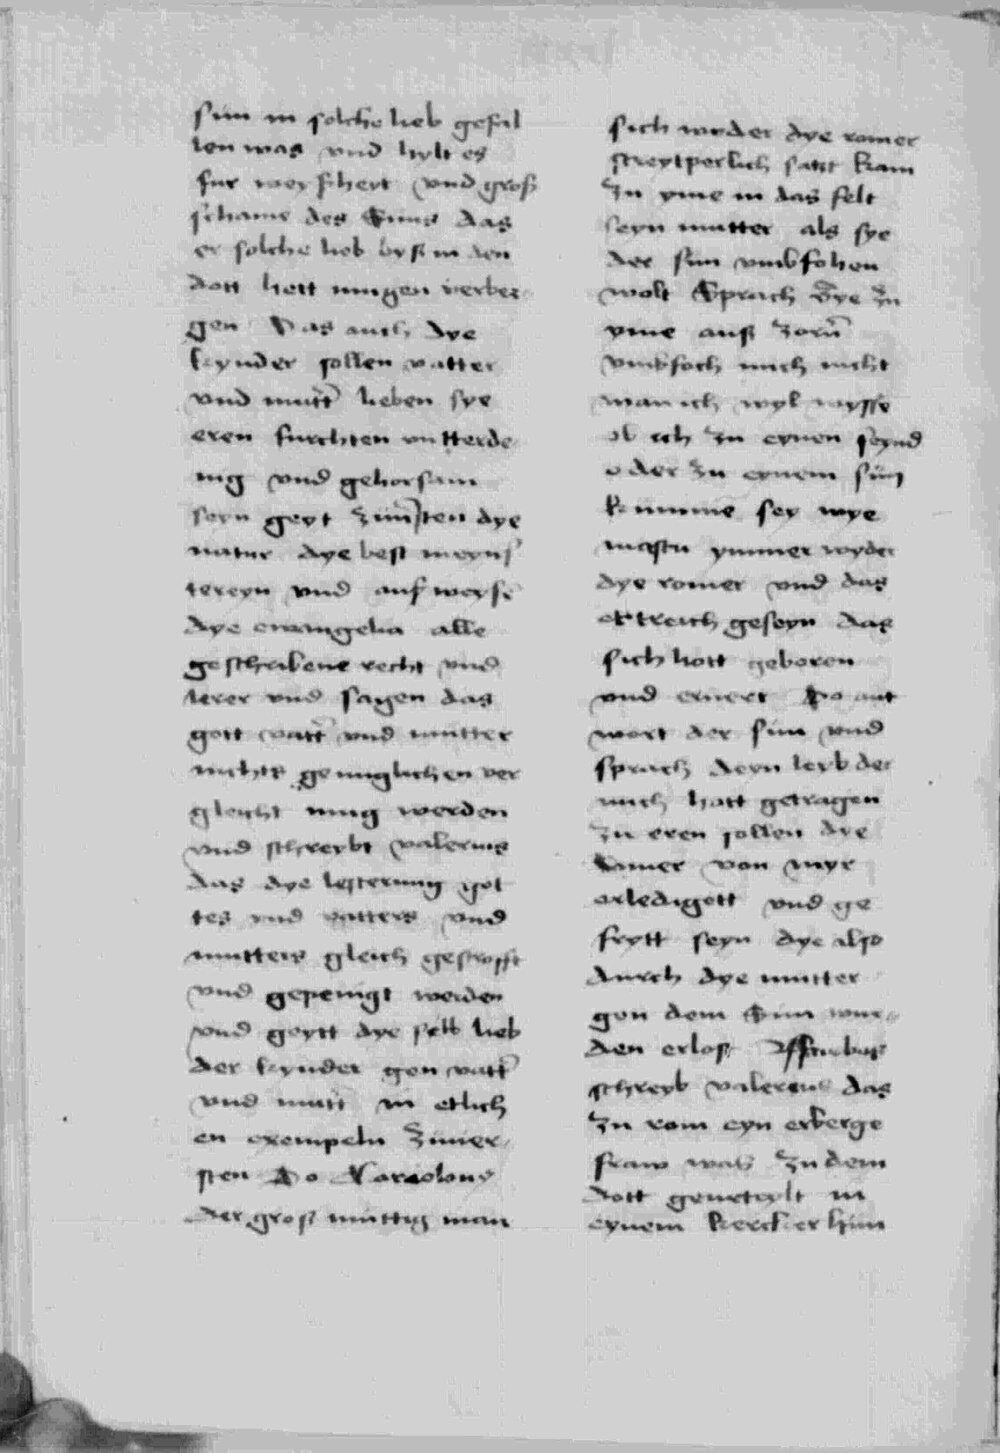 sun in solche lieb gefal
len was vnd hylt es
fur weyßheyt vnd groß
schame des Suns das
er solche lieb byß in den
dott hett mugen verber
gen Das auch dye
kynder sollen vatter
vnd mutt̄ lieben sye
eren furchten vntterde
nig vnd gehorsam
seyn geyt zum̄sten dye
natur dye best meyns
tereyn vnd auf weysē
dye ewangelia alle
geschribene recht vnd
lerer vnd sagen das
gott vatt̄ vnd mutter
nichts genuglichen ver
gleicht mug werden
vnd schreybt valerius
das dye lesterung got
tes vnd vatters vnd
mutters gleich gestrofft
vnd gepenigt werden
vnd geytt dye selb lieb
der kynder gen vatt̄
vnd mutt̄ in etlich
en exempeln zum er
sten Do Coriolony
der groß muttig man
sich wyder dye romer
streytperlich satzt kam
zu yme in das felt
seyn mutter als sye
der sun vmbfohen
wolt Sprach Sye zu
yme auß zorn̄
vmbfoch mich nicht
wan ich wyl wysse
ob ich zu eynen feynd
oder zu eynem sun
kumme sey wye
mastu ymmer wyder
dye romer vnd das
ertreich geseyn das
dich hott geboren
vnd ernert Do ant
wort der sun vnd
sprach deyn leyb der
mich hatt getragen
zu eren sollen dye
romer von myr
erledigett vnd ge
frytt seyn dye also
durch dye mutter
gen dem Sun wur
den erlost
schreyb valerius das
zu rom eyn erberge
fraw was zu dem
dott geurteylt in
eynem kercker him